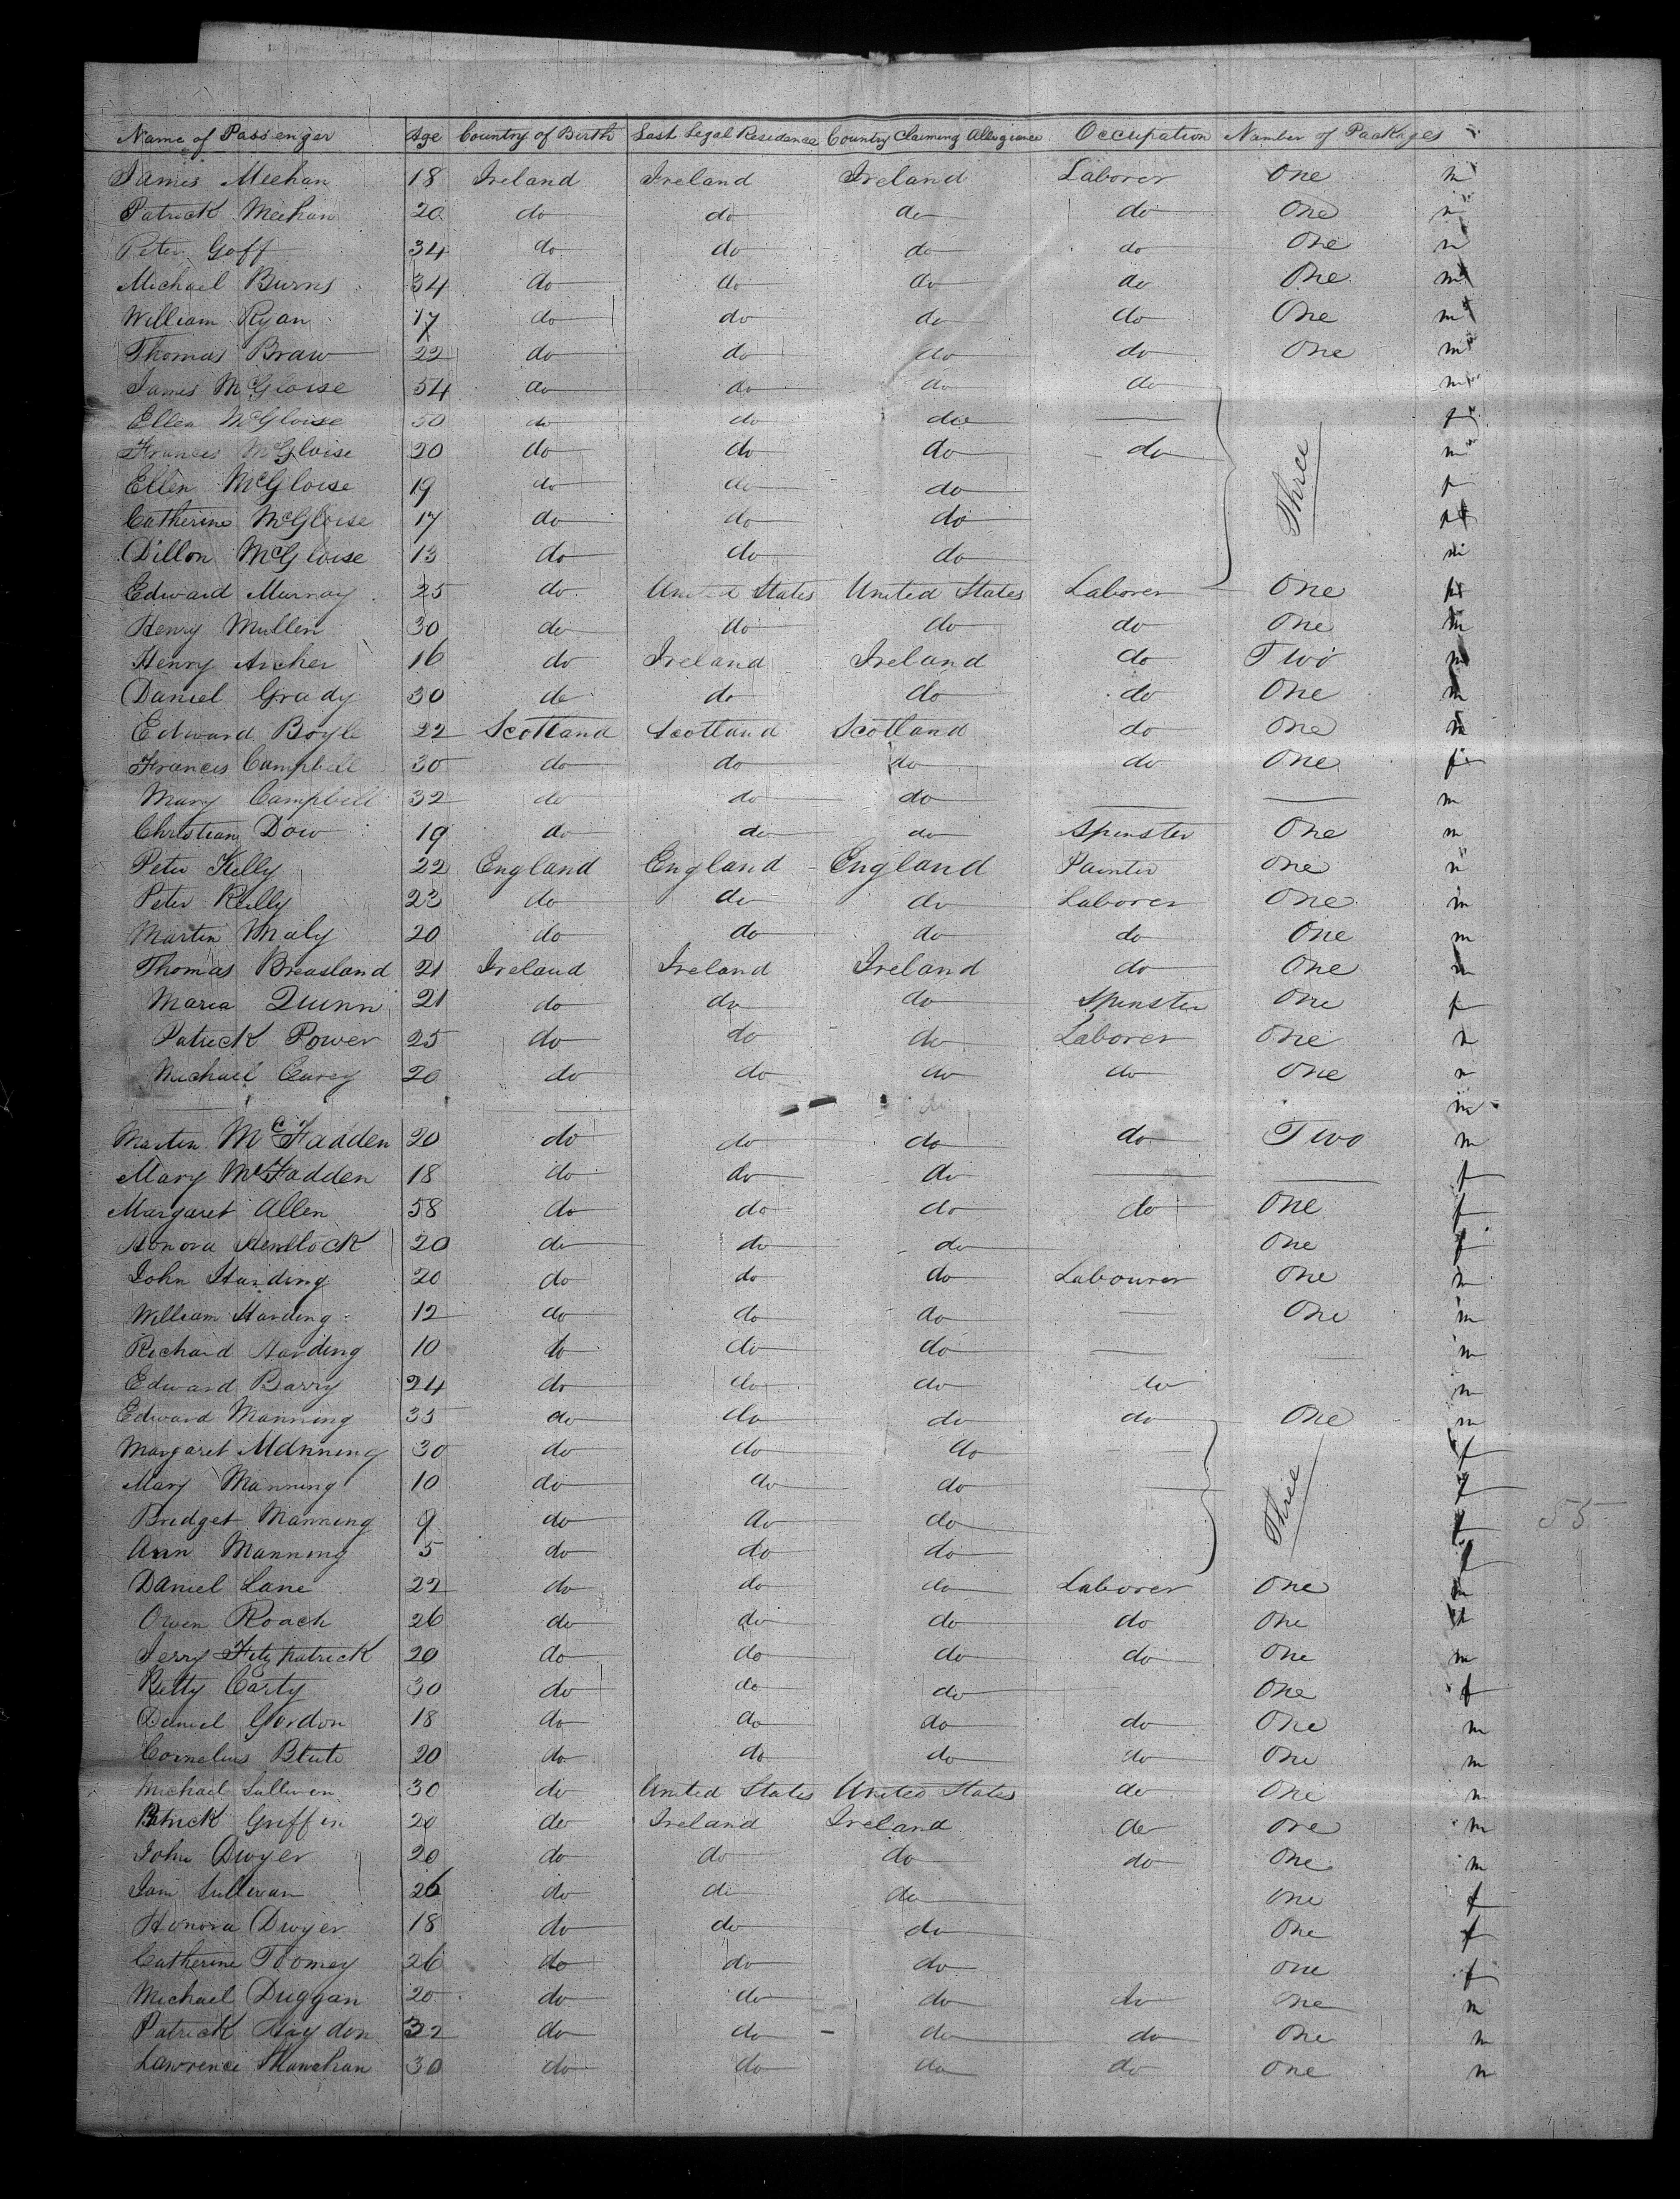 Name of Passenger Age Country of Birth Last Legal Residence Country Claiming Allegiance Occupation Number of Packages
James Meehan 18 Ireland Ireland Ireland Laborer One m
Patrick Meehan 20 do do do do One m
Peter Goff 34 do do do do One m
Michael Burns 34 do do do do One m
William Ryan 17 do do do do One m
Thomas Braw 22 do do do do One m
James McGloise 54 do do do do m
Ellen McGloise 50 do do do — f
Francis McGloise 20 do do do do m
Ellen McGloise 19 do do do Three f
Catherine McGloise 17 do do do f
Dillon McGloise 13 do do do m
Edward Murray 25 do United States United States Laborer One m
Henry Mullen 30 do do do do One m
Henry Archer 16 do Ireland Ireland do Two m
Daniel Grady 30 do do do do One m
Edward Boyle 22 Scotland Scotland Scotland do One m
Francis Campbell 30 do do do do One f
Mary Campbell 32 do do do — — m
Christian Dow 19 do do do Spinster One m
Peter Kelly 22 England England England Painter One m
Peter Reilly 23 do do do Laborer One m
Martin Maly 20 do do do do One m
Thomas Breasland 21 Ireland Ireland Ireland do One m
Maria Quinn 21 do do do Spinster One f
Patrick Power 25 do do do Laborer One m
Michael Carey 20 do do do do One m
do m
Martin McFadden 20 do do do do Two m
Mary McFadden 18 do do do — — f
Margaret Allen 58 do do do do One f
Honora Hemlock 20 do do do One f
John Harding 20 do do do Labourer One m
William Harding 12 do do do — One m
Richard Harding 10 do do do — — m
Edward Barry 24 do do do do m
Edward Manning 35 do do do do One m
Margaret Manning 30 do do do — f
Mary Manning 10 do do do — Three f
Bridget Manning 9 do do do f 55
Ann Manning 5 do do do f
Daniel Lane 22 do do do Laborer One m
Owen Roach 26 do do do do One m
Jerry Fitzpatrick 20 do do do do One m
Betty Carty 30 do do do One f
Daniel Gordon 18 do do do do One m
Cornelius 20 do do do do One m
Michael Sullivan 30 do United States United States do One m
Patrick Griffin 20 do Ireland Ireland do One m
John Dwyer 20 do do do do One m
Sullivan 26 do do do One f
Honora Dwyer 18 do do do One f
Catherine Toomey 26 do do do One f
Michael Duggan 20 do do do do One m
Patrick Haydon 32 do do do do One m
Lawrence Shanahan 30 do do do do One m